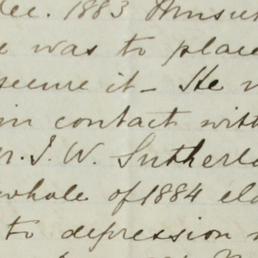 Dec. 1883
was to place
secure it - He
in contact with
Mr. J. W. Sutherla
whole of 1884 ela
to depression